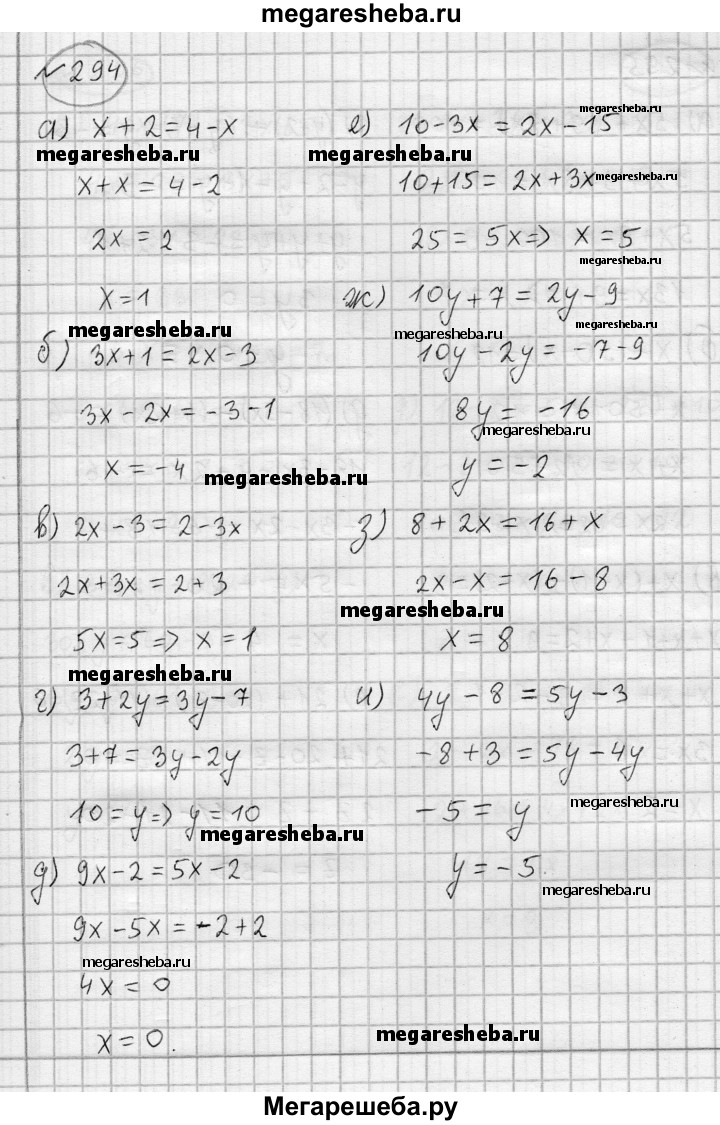 megaresheba.ru
№294
а) x + 2 = 4 - x
megaresheba.ru
x + x = 4 - 2
2x = 2
x = 1
megaresheba.ru
б) 3x + 1 = 2x - 3
3x - 2x = -3 - 1
x = -4
megaresheba.ru
в) 2x - 3 = 2 - 3x
2x + 3x = 2 + 3
5x = 5 => x = 1
megaresheba.ru
г) 3 + 2y = 3y - 7
3 + 7 = 3y - 2y
10 = y => y = 10
megaresheba.ru
д) 9x - 2 = 5x - 2
9x - 5x = -2 + 2
megaresheba.ru
4x = 0
x = 0.
megaresheba.ru
е) 10 - 3x = 2x - 15
megaresheba.ru
10 + 15 = 2x + 3x
megaresheba.ru
25 = 5x => x = 5
megaresheba.ru
ж) 10y + 7 = 2y - 9
megaresheba.ru
megaresheba.ru
10y - 2y = -7 - 9
8y = -16
megaresheba.ru
y = -2
з) 8 + 2x = 16 + x
2x - x = 16 - 8
megaresheba.ru
x = 8
и) 4y - 8 = 5y - 3
-8 + 3 = 5y - 4y
-5 = y
megaresheba.ru
y = -5.
megaresheba.ru
megaresheba.ru
Мегарешеба.ру